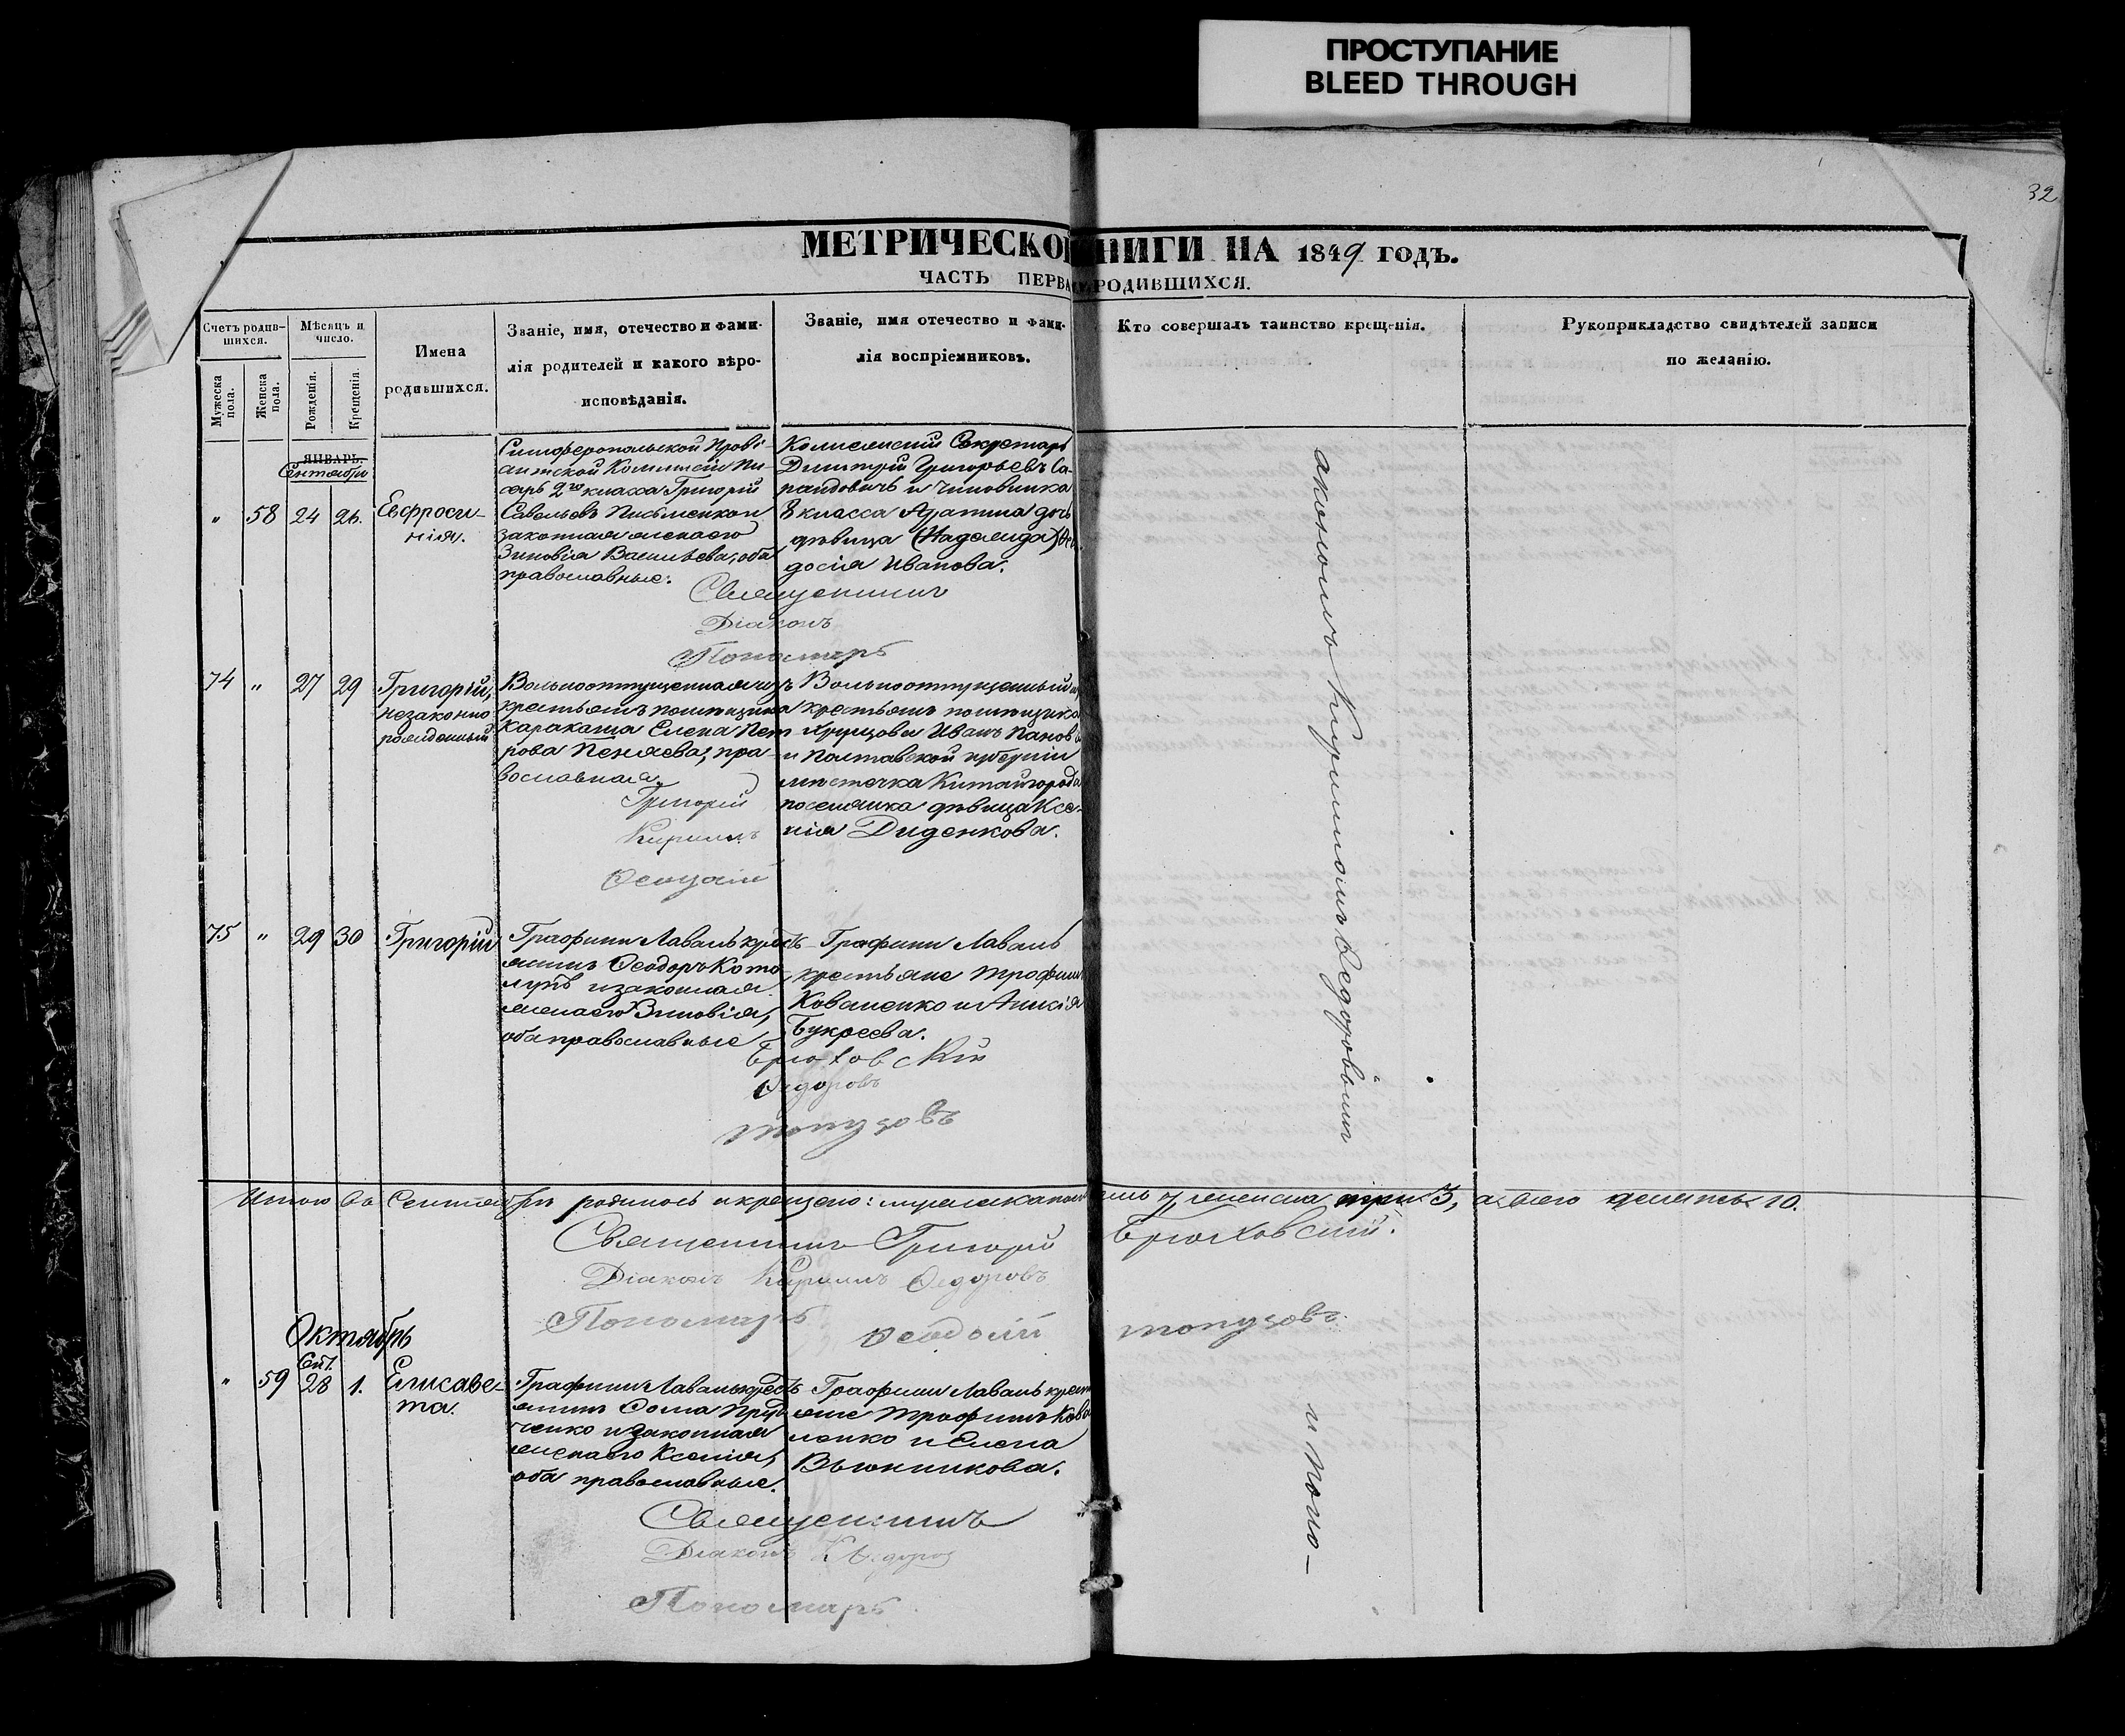 ПРОСТУПАНИЕ
BLEED THROUGH
32
МЕТРИЧЕСКОЙ КНИГИ НА 1849 ГОДЪ.
ЧАСТЬ ПЕРВАЯ РОДИВШИХСЯ.
Счетъ родив-
шихся.
Мужеска
пола.
Женска
пола.
Мѣсяцъ и
число.
Рожденія.
Крещенія.
Имена
родившихся.
Званіе, имя, отечество и фами-
лія родителей и какого вѣро-
исповѣданія.
Званіе, имя отечество и фами-
лія воспріемниковъ.
Кто совершалъ таинство крещенія.
Рукоприкладство свидѣтелей записи
по желанію.
ЯНВАРЬ.
Сентябрь
" 58 24 26. Евфроси-
нія.
Симферопольской Прові-
антской Коммисіи Пи-
сарь 2го класса Григорій
Савельевъ Письменкои
законная жена его
Зиновія Васильева, оба
православные.
Секретарь
Димитрій Григорьевъ Са-
рандовичъ и чиновника
8 класса дочь
дѣвица (Надежда) Ѳео-
досія Иванова.
Священникъ
Діаконъ
Пономарь
74 " 27 29 Григорій,
незаконно
рожденный
Вольноотпущенная изъ
крестьянъ помѣщика
Каракаша Елена Пет
рова Пеняева, пра-
вославная.
Вольноотпущенный изъ
крестьянъ помѣщика
Иванъ Пановъ
и Полтавской губерніи
мѣстечка Китайгорода
поселянка дѣвица Ксе-
нія Диденкова.
Григорій
Кириллъ
Ѳеодосій
75 " 29 30 Григорій
Графини Лаваль кресть
янинъ Ѳеодоръ
и законная
жена его Зиновія,
оба православные
Графини Лаваль
крестьяне Трофимъ
Коваленко и
Букреева.
Брюховскій
Ѳедоровъ
Топузовъ
Итого въ Сентябрѣ родилось и крещено: мужеска пола семь 7, женска три 3, а всего десять 10.
Священникъ Григорій Брюховскій.
Діаконъ Кириллъ Ѳедоровъ
Пономарь Ѳеодосій Топузовъ.
Октябрь
Сент.
" 59 28 1. Елисаве-
та.
Графини Лаваль кресть
янинъ Ѳома
ченко и законная
жена его Ксенія,
оба православные.
Графини Лаваль кресть
яне Трофимъ Кова
ленко и Елена
Вьюнникова.
Священникъ
Діаконъ К. Ѳедоров
Пономарь
акономъ Кирилломъ Ѳедоровымъ
и Поно-